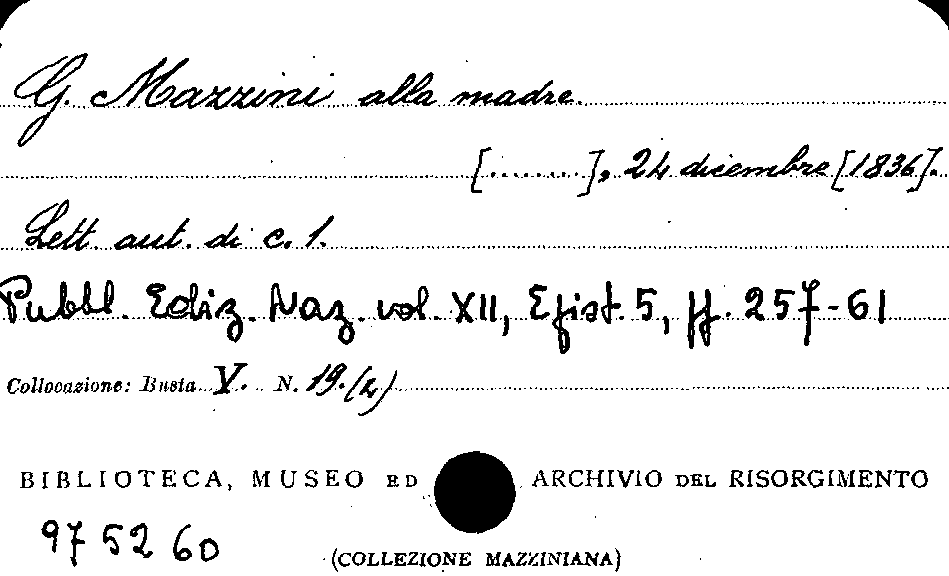 G. Mazzini alla madre.
[........], 24 dicembre [1836].
Lett. aut. di c. 1.
Pubbl. Ediz. Naz. vol. XII, Epist. 5, pp. 257-61
Collocazione: Busta V. N. 19.(2)
BIBLIOTECA, MUSEO ED ARCHIVIO DEL RISORGIMENTO
97 52 60
(COLLEZIONE MAZZINIANA)